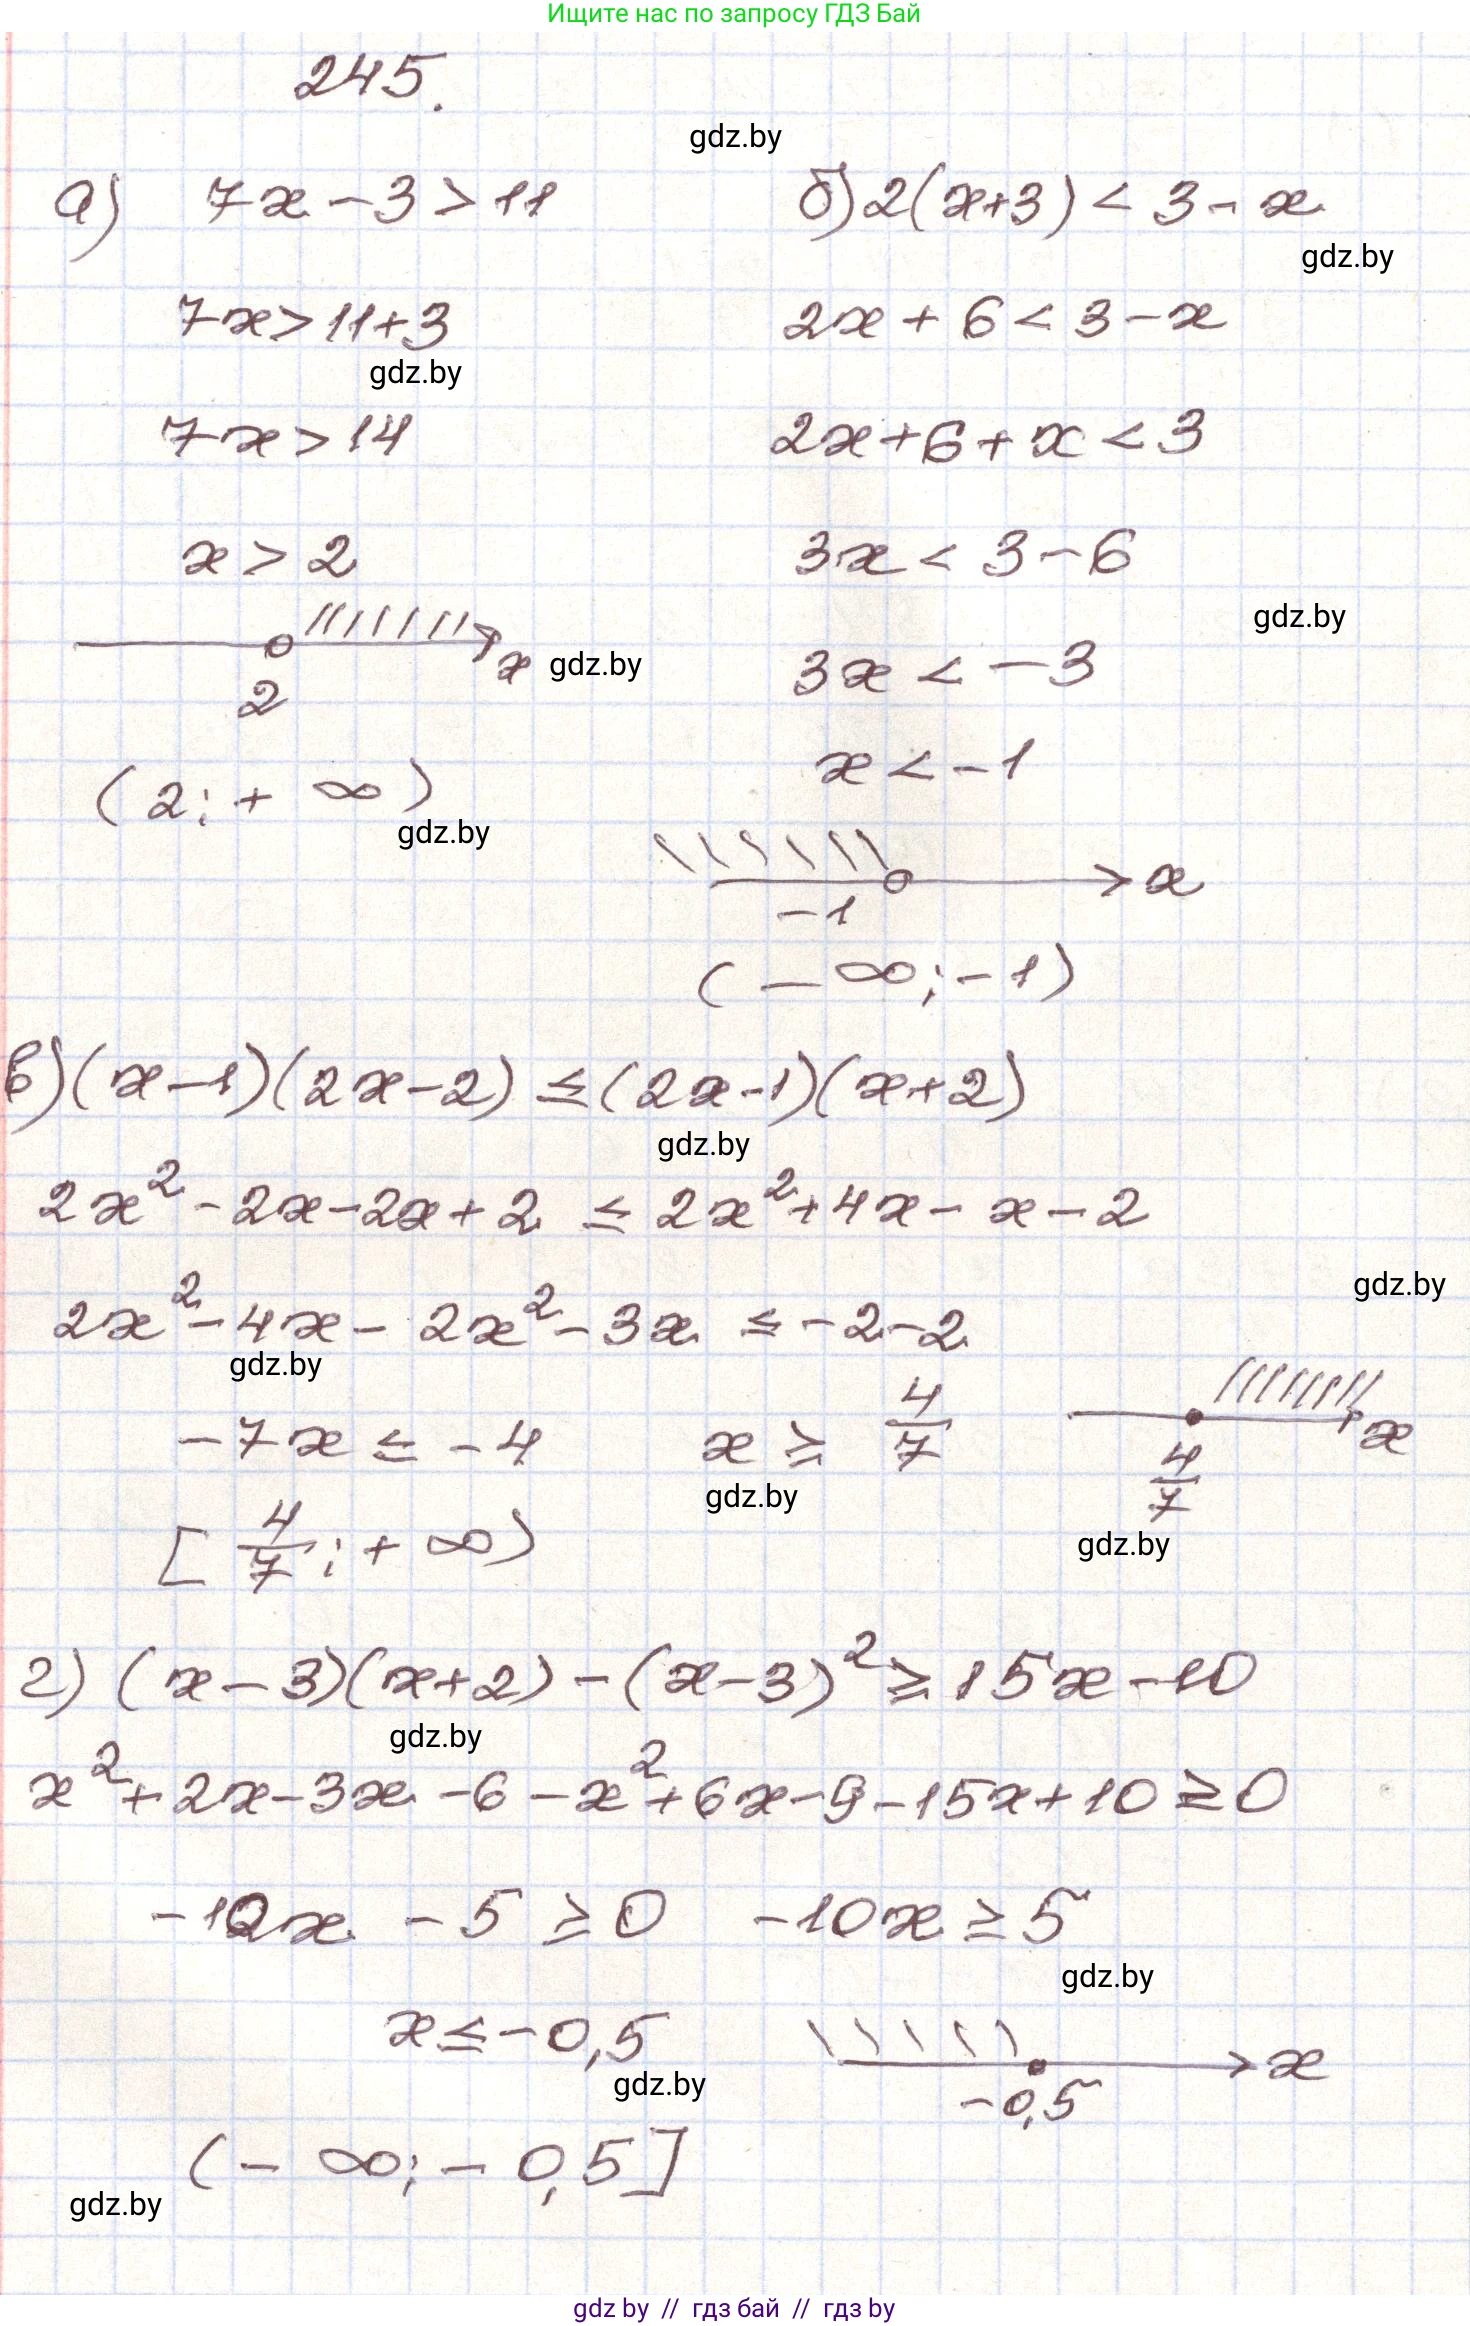 Ищите нас по запросу ГДЗ Бай
245.
gdz.by
а) 7x - 3 > 11
б) 2(x+3) < 3 - x
gdz.by
7x > 11+3
2x + 6 < 3 - x
gdz.by
7x > 14
2x + 6 + x < 3
x > 2
3x < 3 - 6
gdz.by
x
gdz.by
3x < -3
2
x < -1
(2; + ∞)
gdz.by
x
-1
(- ∞; -1)
в) (x-1)(2x-2) ≤ (2x-1)(x+2)
gdz.by
2x² - 2x - 2x + 2 ≤ 2x² + 4x - x - 2
gdz.by
2x² - 4x - 2x² - 3x ≤ -2 - 2
gdz.by
-7x ≤ -4 x ≥ 4/7
x
gdz.by
4/7
gdz.by
[4/7; + ∞)
г) (x-3)(x+2) - (x-3)² ≥ 15x - 10
gdz.by
x² + 2x - 3x - 6 - x² + 6x - 9 - 15x + 10 ≥ 0
-10x - 5 ≥ 0 -10x ≥ 5
gdz.by
x ≤ -0,5
x
gdz.by
-0,5
(- ∞; - 0,5]
gdz.by
gdz by // гдз бай // гдз by